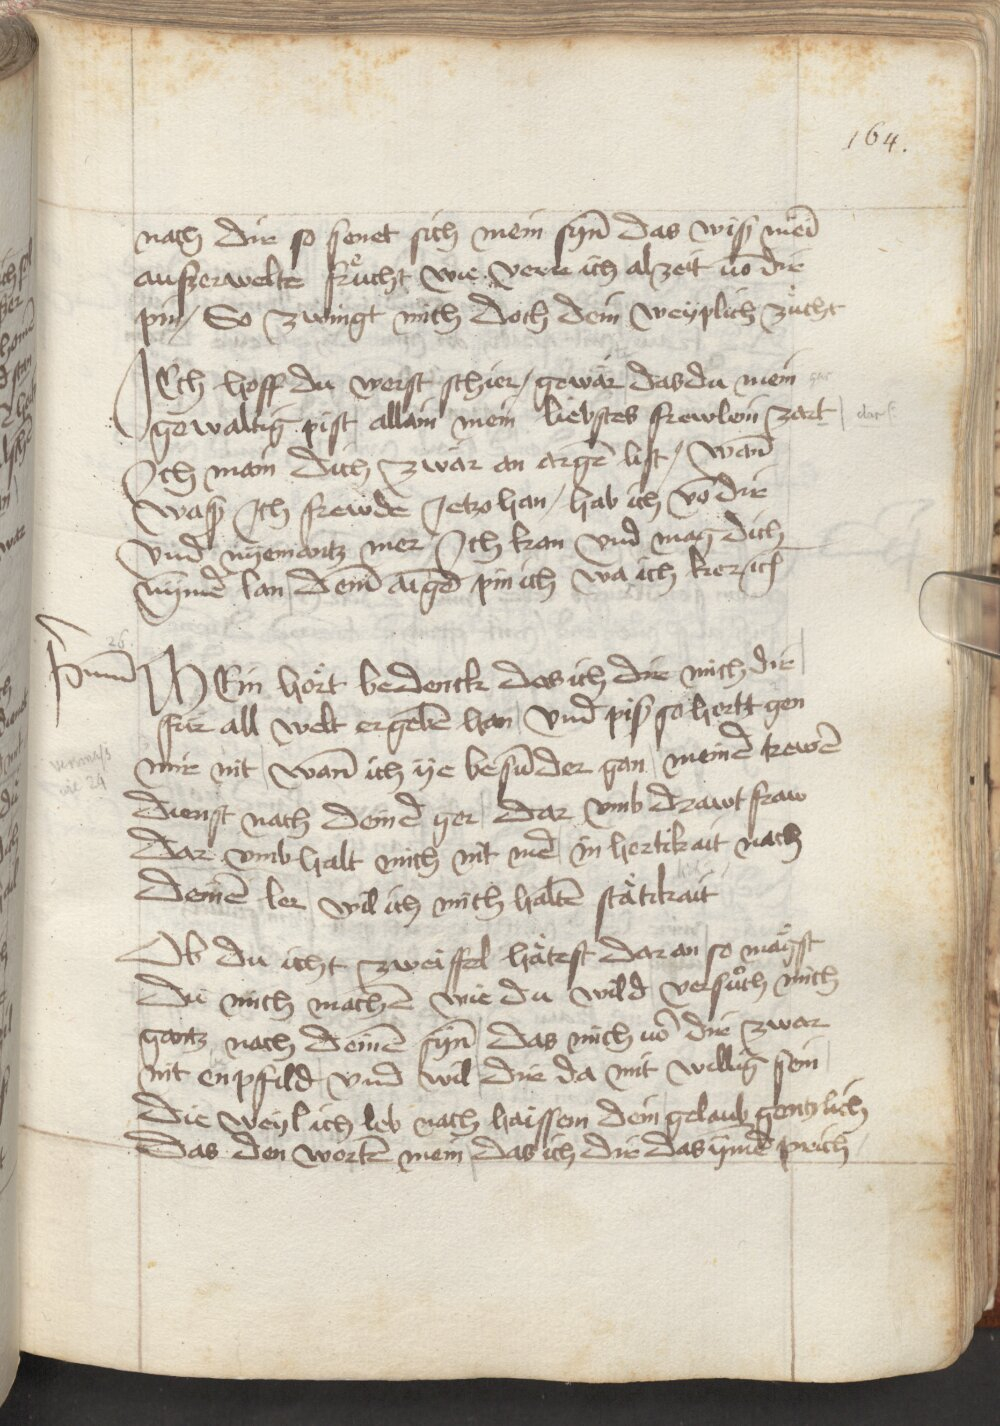 164.
nach dir so senet sich mein syn̄ das wiss mei̅
auszerwelte frücht wie verr ich alzeit vo̅ dir
pin / So zwingt mich doch dein weyplich zücht
ICh hoff du werst schier / gewar das du mein
gewaltig pist allain mein liebstes frewlein zart
Ich main dich zwar an arge̅ list / wan̅
wass Ich frewde Jetzo han / hab ich vo̅ dir
vnd nyemantz mer Ich kan vnd mag dich
nyme̅ lan dein aige̅ pin ich wa ich ker ich
26
Primu̅ MEin hört bedenck das ich dir mich dir
für all welt ergebe̅ han vnd piss so hertt gen
mir nit wan̅ ich ye besu̅der gan meine̅ trewe̅
dienst nach deine̅ ger dar vmb drawt fraw
dar vmb halt mich nit me̅ in hertikait nach
deine̅ ler wil ich mich halte̅ stätikait
Ob du icht zweiffel hätest dar an so magst
du mich mache̅ wie du wild versuch mich
gantz nach deine̅ syn̄ das mich vo̅ dir zwar
nit enpfild vnd wil dir da mit willig sein
die weyl ich leb nach haissem dein gelaub gentzlich
das den worte̅ mein das ich dir das yme̅ prich